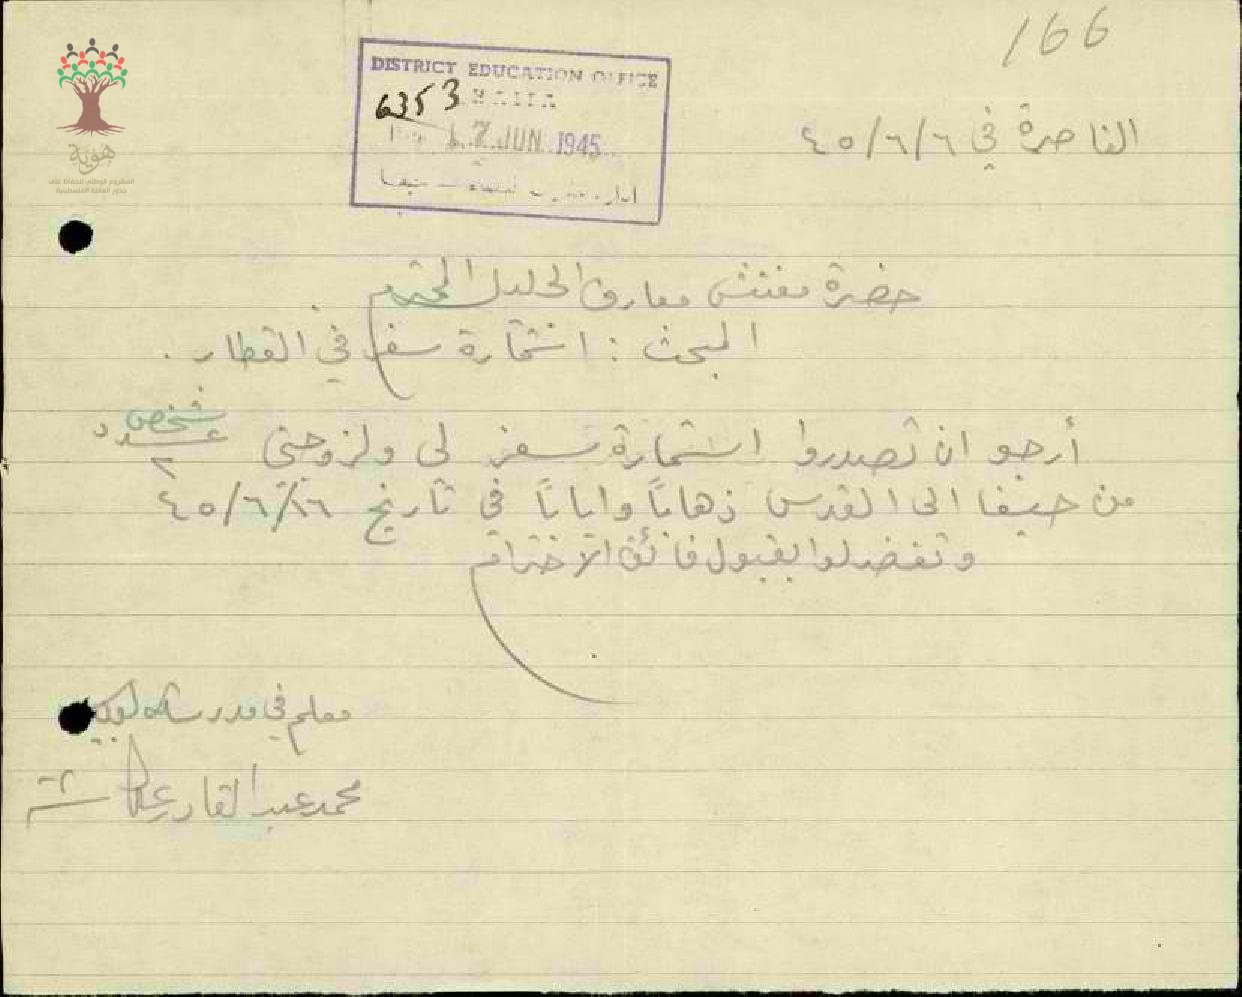 166
DISTRICT EDUCATION OFFICE
6353 HAIFA
7 JUN 1945
الناصرة في ٤٥/٦/٦
هوية
المشروع الوطني للحفاظ على
جذور العائلة الفلسطينية
حضرة مفتش معارف الجليل المحترم
المبحث : استمارة سفر في القطار .
أرجو ان تصدروا استمارة سفر لي ولزوجتي شخص عدد ٢
من حيفا الى القدس ذهاباً واياباً في تاريخ ٤٥/٦/١٦
وتفضلوا بقبول فائق الاحترام
معلم في مدرسة
محمد عبد القادر عكاشة